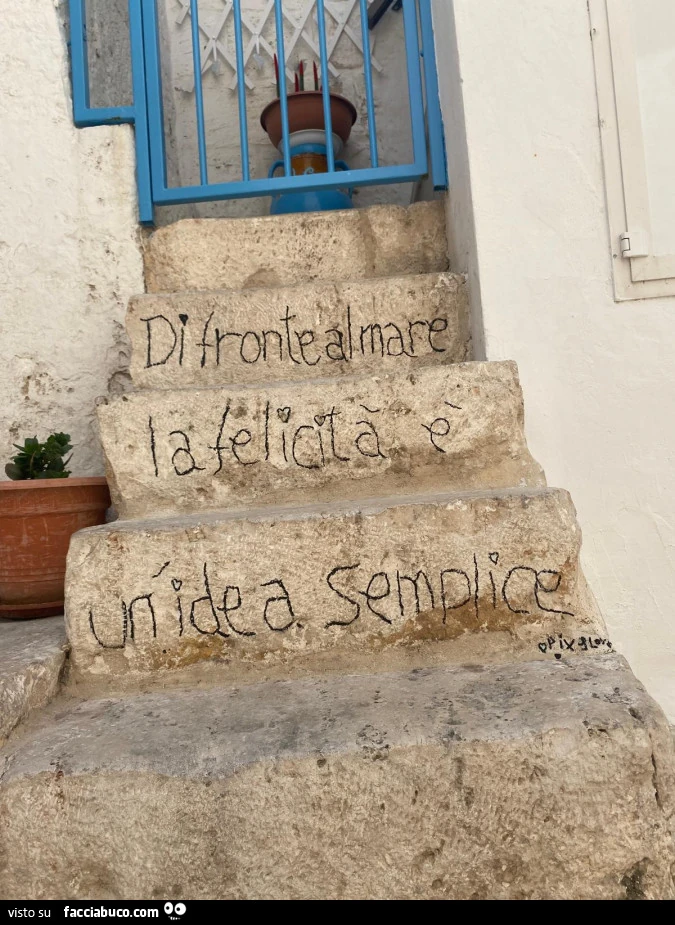 Di fronte al mare
la felicità è
un'idea semplice
visto su facciabuco.com